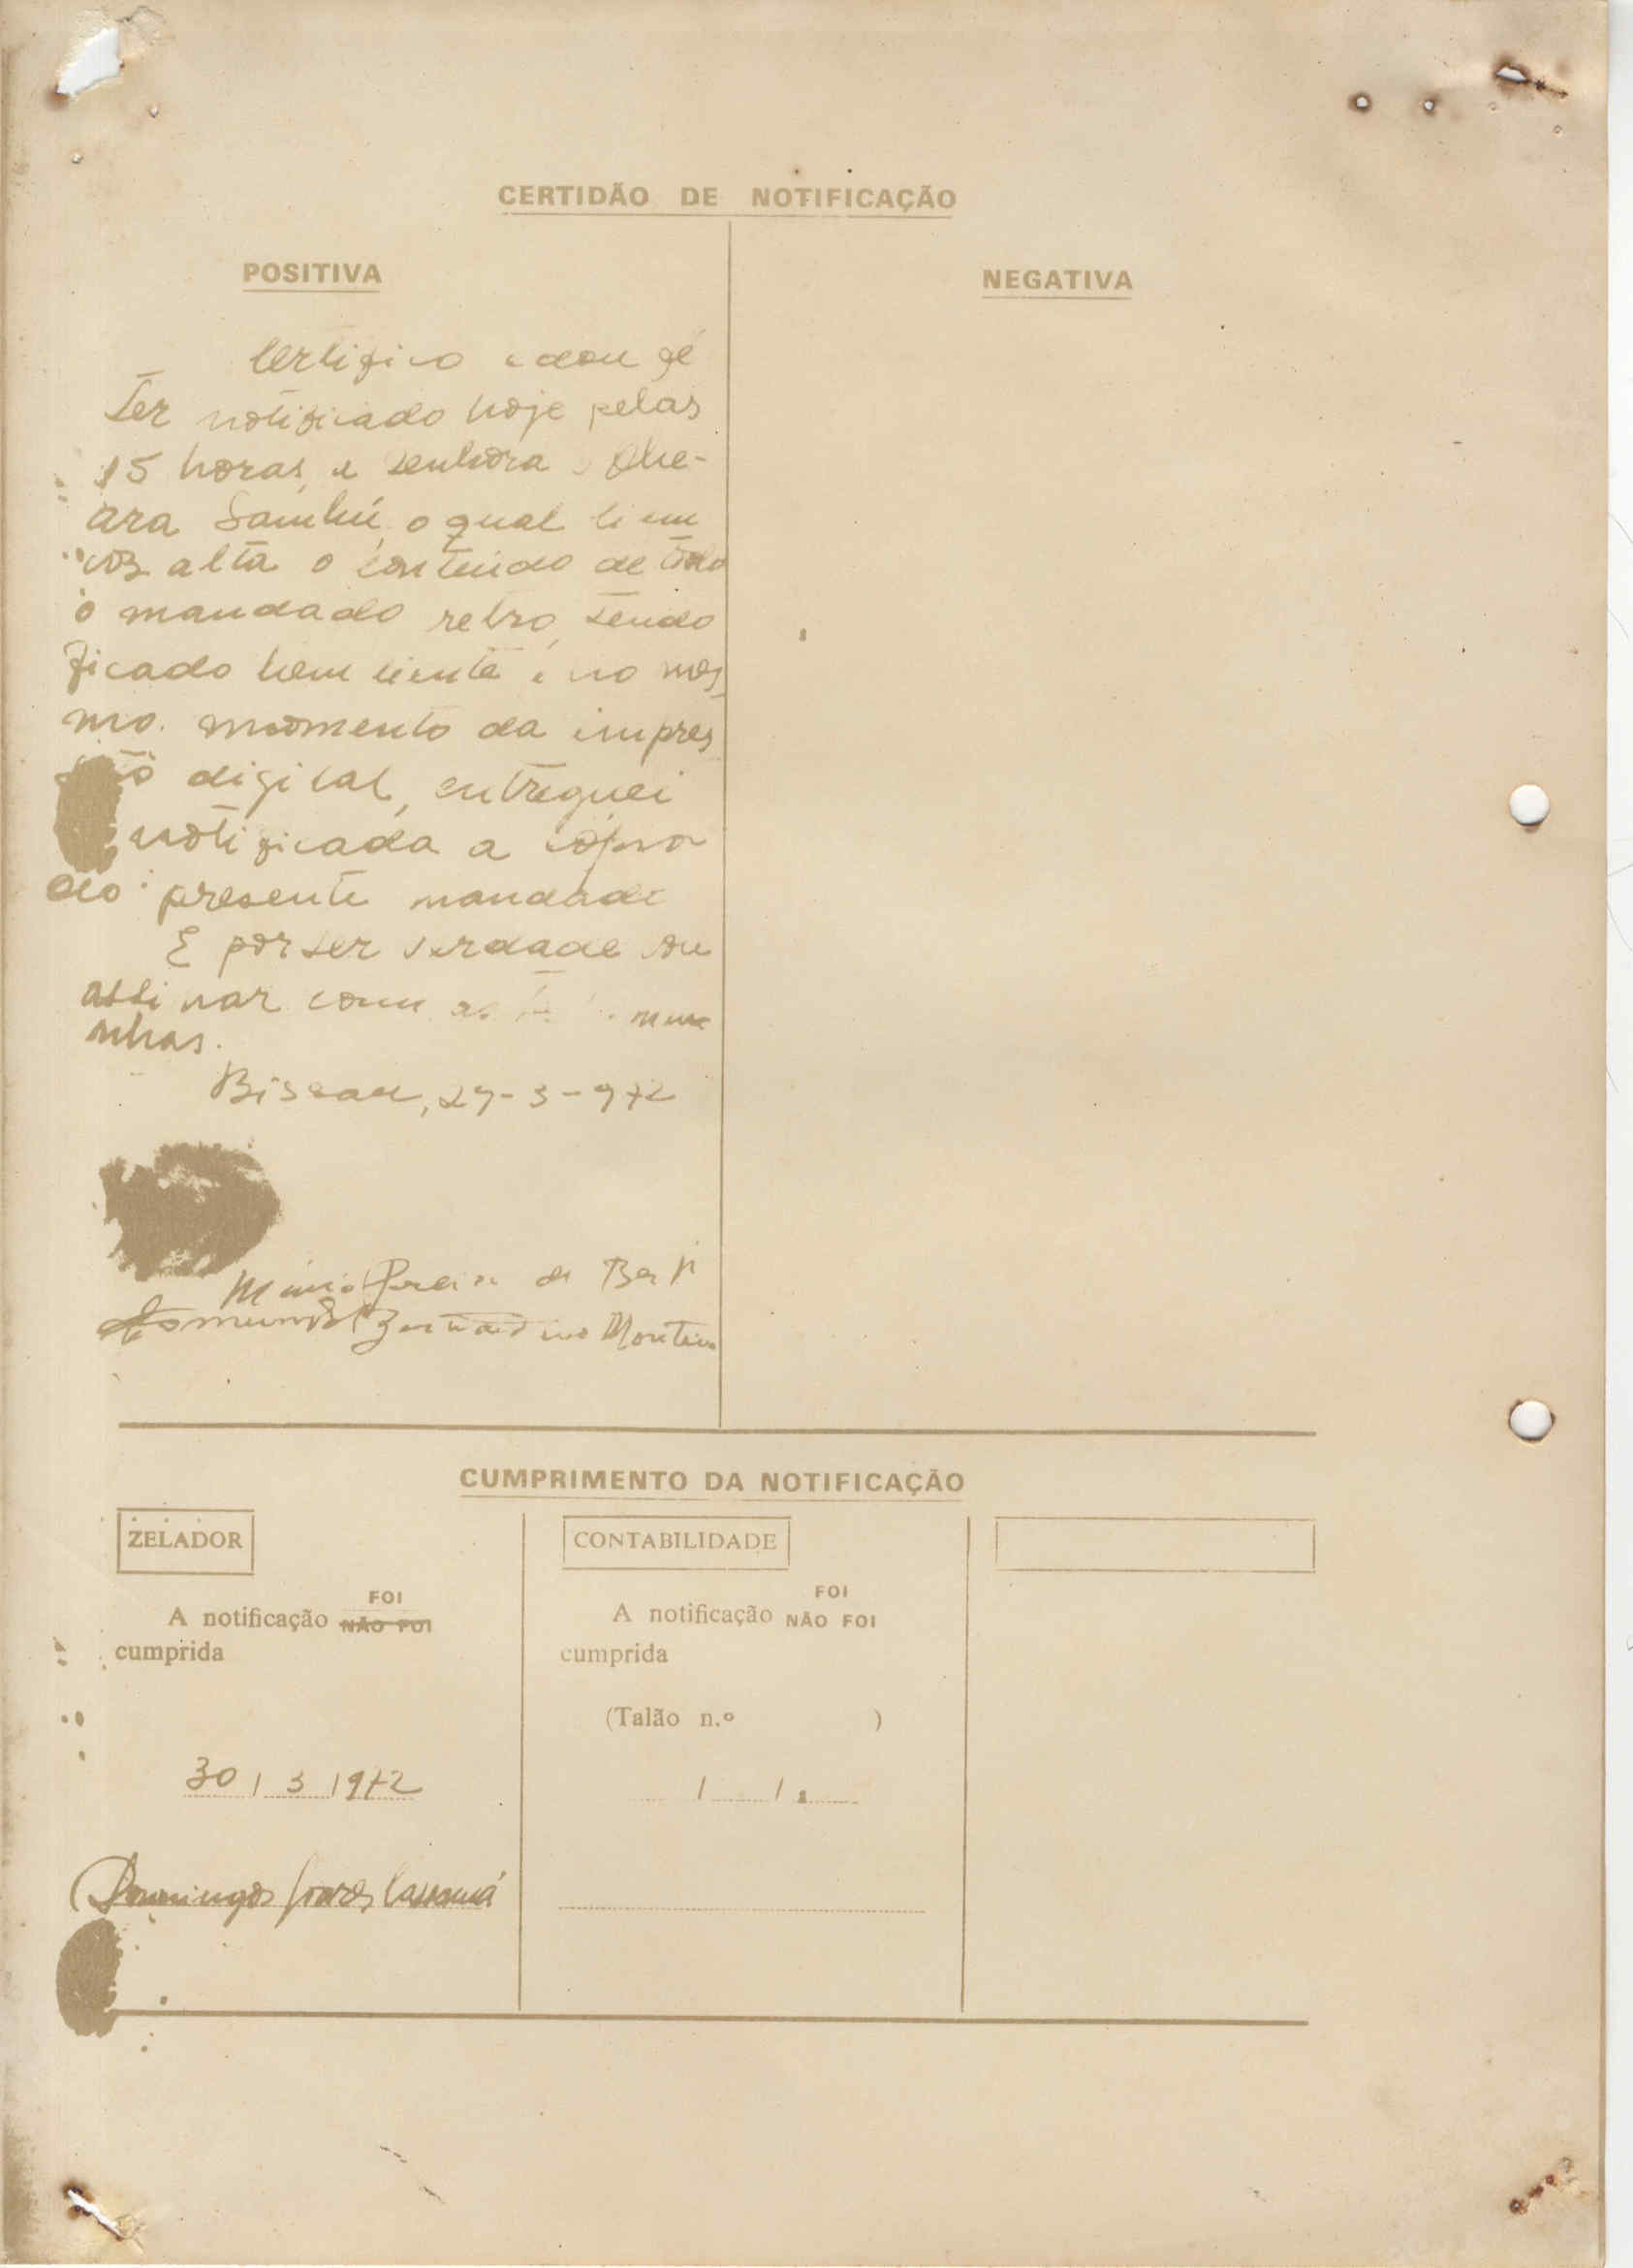 CERTIDÃO DE NOTIFICAÇÃO
POSITIVA
NEGATIVA
Certifico e dou fé
ter notificado hoje pelas
15 horas, a senhora
o qual li em
voz alta o conteúdo de todo
o mandado retro, sendo
ficado bem ciente e no mes
mo momento da impres
são digital, entreguei
notificada a cópia
do presente mandado
E por ser verdade vou
assinar com as
nhas.
Bissau, 29-3-972
Pereira de
Bernardino Monteiro
CUMPRIMENTO DA NOTIFICAÇÃO
ZELADOR
CONTABILIDADE
A notificação FOI NÃO FOI
cumprida
A notificação FOI NÃO FOI
cumprida
(Talão n.º )
30 / 3 / 972
/ /
Domingos Soares Cassamá